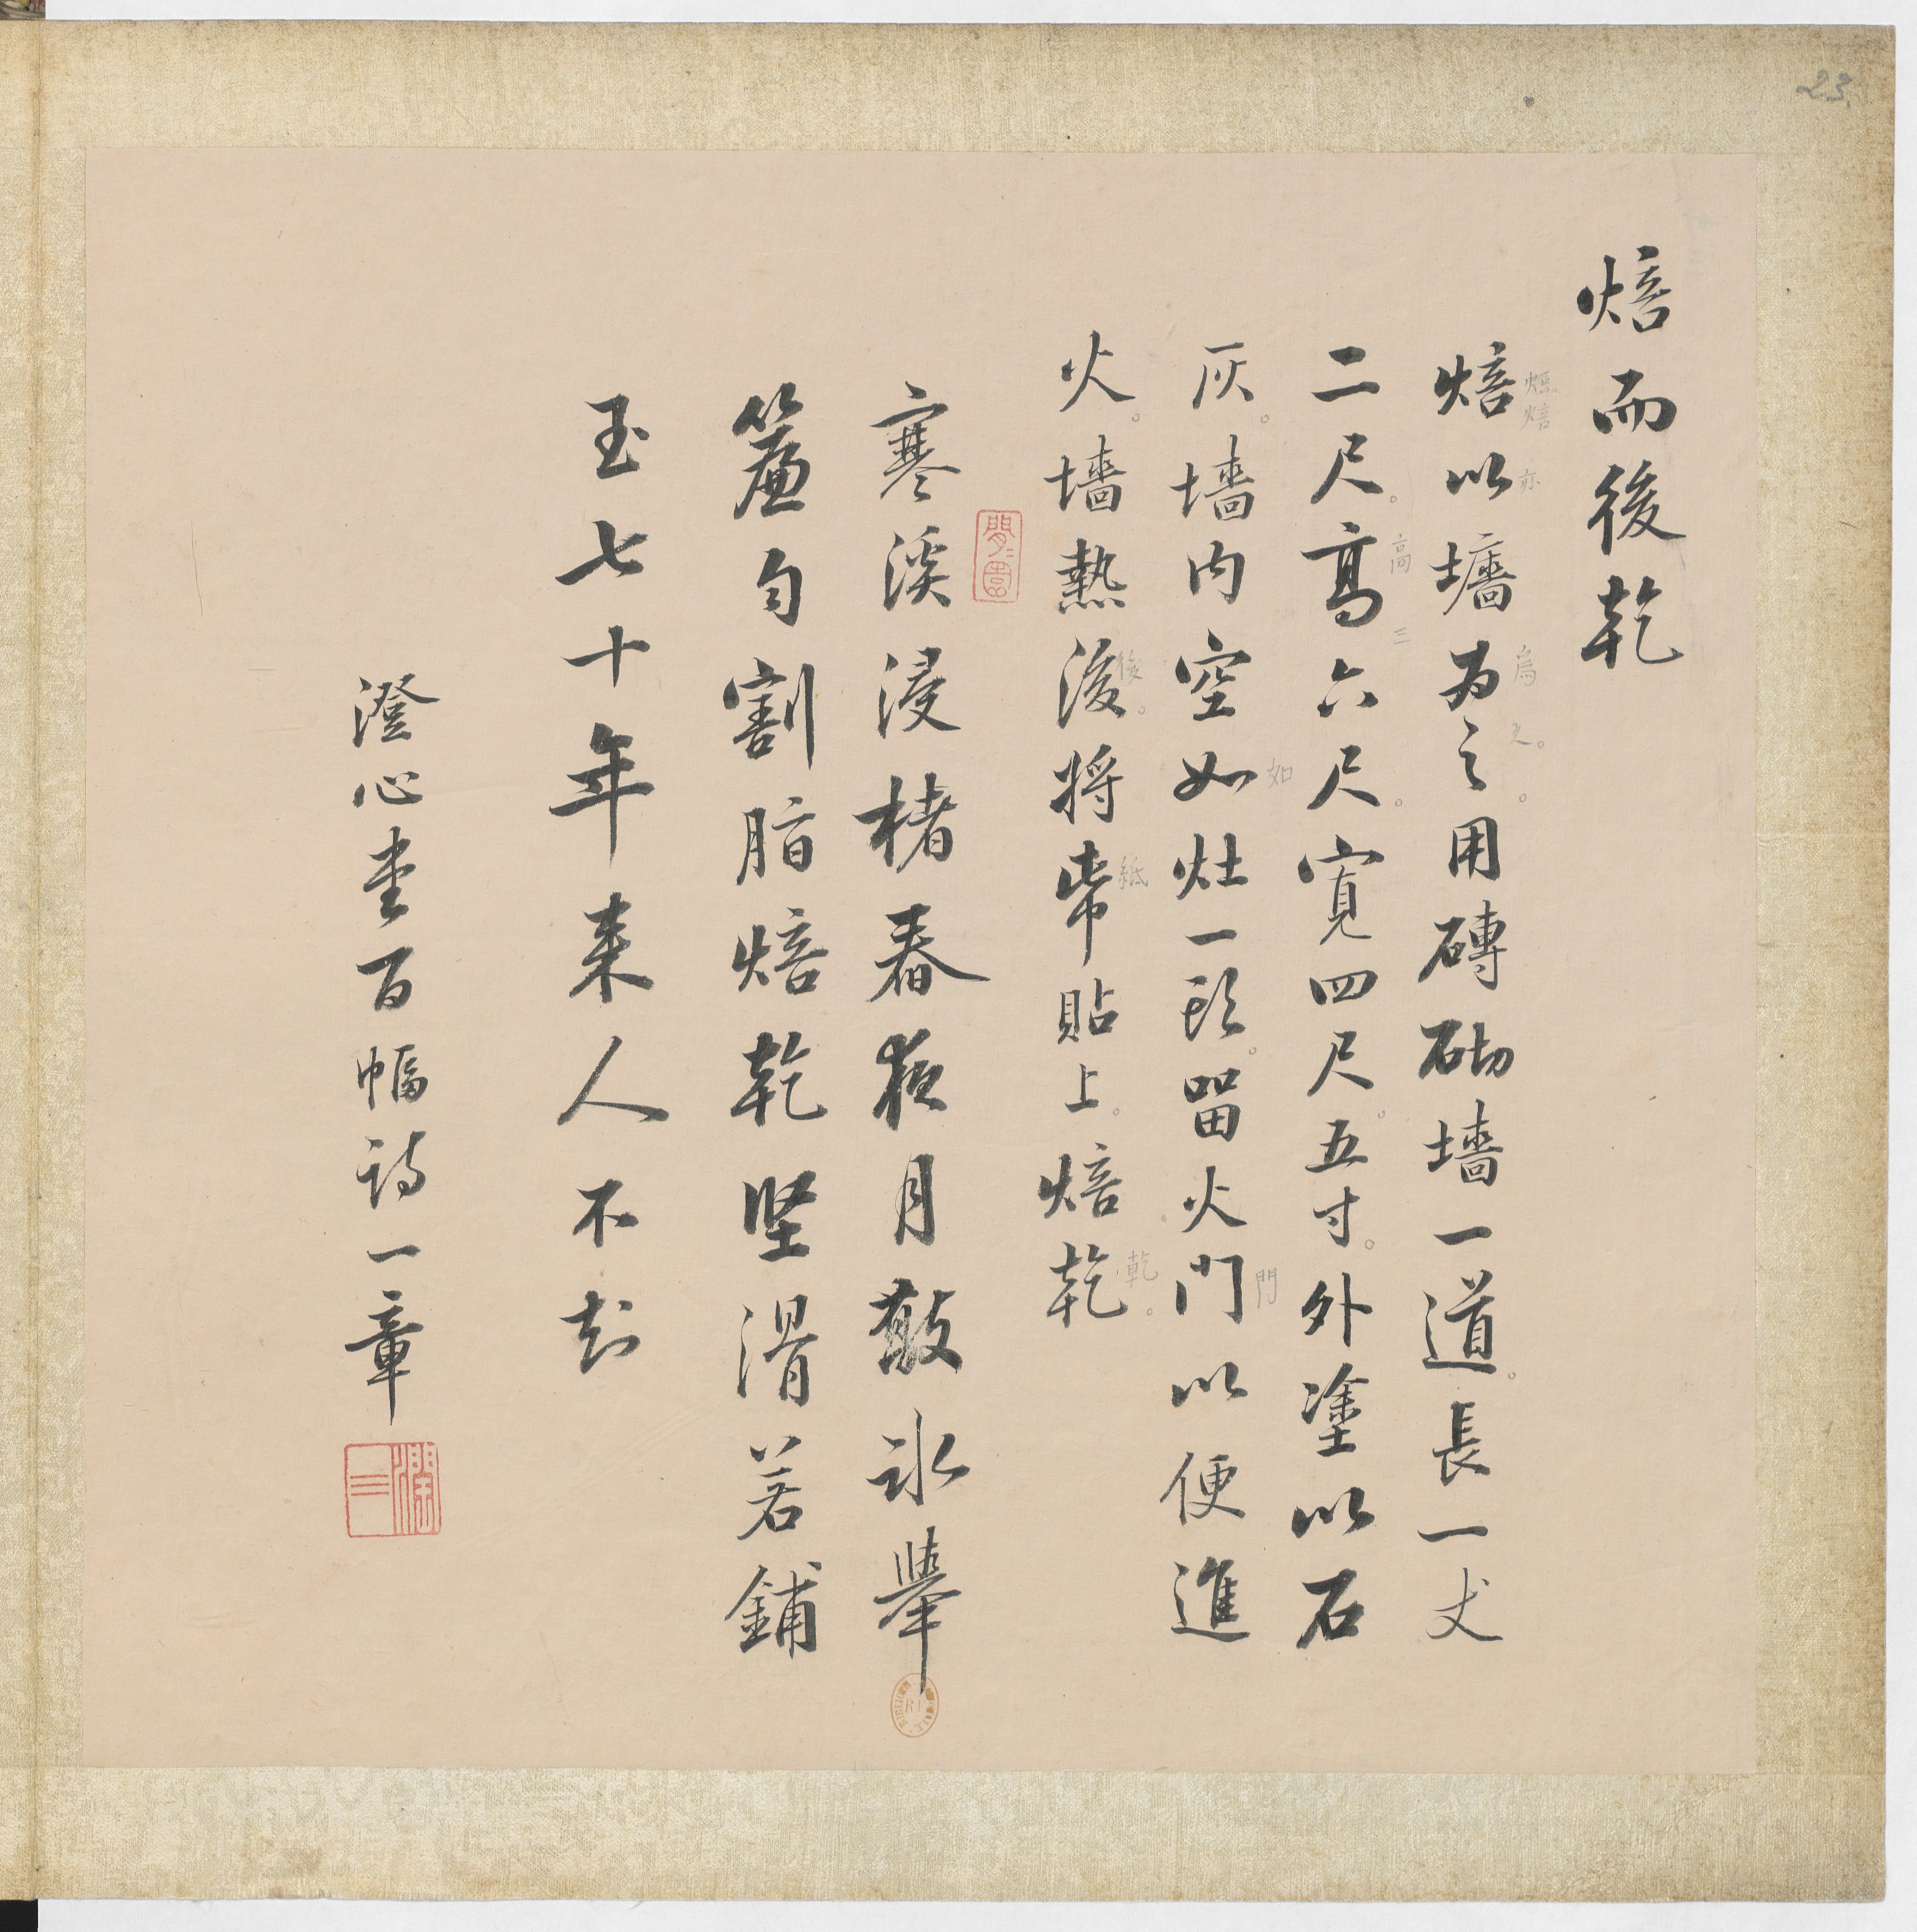 23
焙而後乾
焙以墻為之用磚砌墻一道長一丈
二尺高六尺寬四尺五寸外塗以石
灰墻内空如灶一頭留火門以便進
火墻熱後將帋貼上焙乾
寒溪浸楮春夜月敲冰舉
簾勻割脂焙乾堅滑若鋪
玉七十年來人不知
澄心堂百幅詩一章